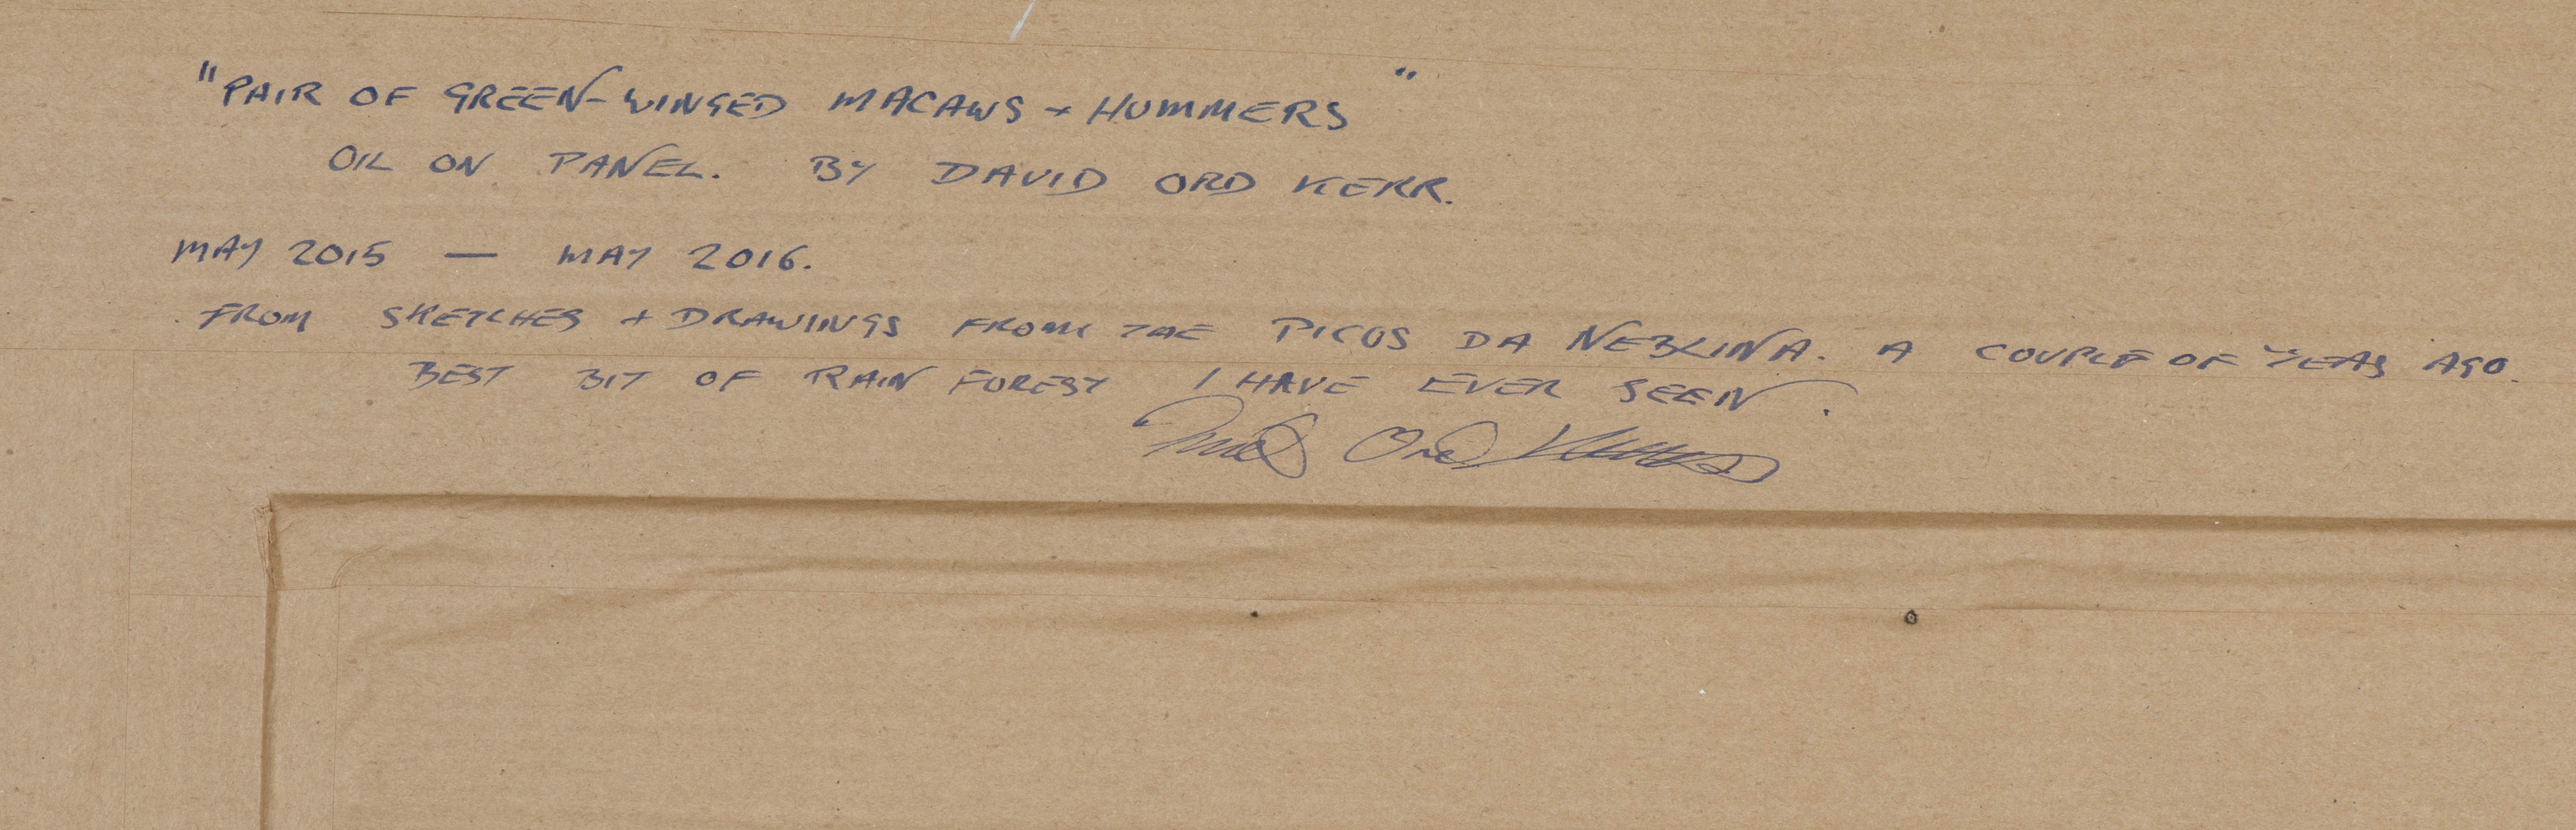 "PAIR OF GREEN-WINGED MACAWS + HUMMERS"
OIL ON PANEL. BY DAVID ORD KERR.
MAY 2015 — MAY 2016.
FROM SKETCHES + DRAWINGS FROM THE PICOS DA NEBLINA. A COUPLE OF YEAS AGO.
BEST BIT OF RAIN FOREST I HAVE EVER SEEN.
David Ord Kerr